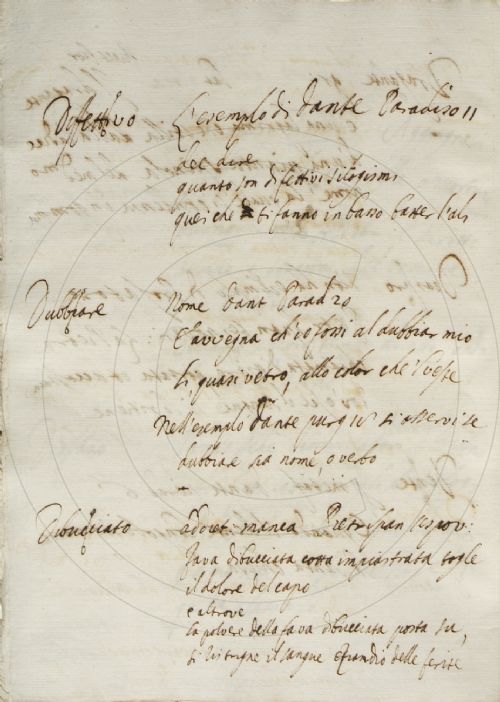 Difettivo L'esemplo di dante Paradiso 11
dee dire
quanto son difettivi silogismi
quei che ti fanno in basso batter l'ali
Dubbiare Nome Dant Parad 20
E avvegna ch'io fossi al dubbiar mio
li quasi vetro, allo color che l'veste
Nell'esemplo dante purg si osservi se
dubbiare sia nome, o verbo
Dibucciato manca Pietr Ispan
fava dibucciata cotta impiastrata togle
il dolore del capo
e altrove
la polvere della fava dibucciata posta su,
si ristrugne il sangue eziandio delle ferite